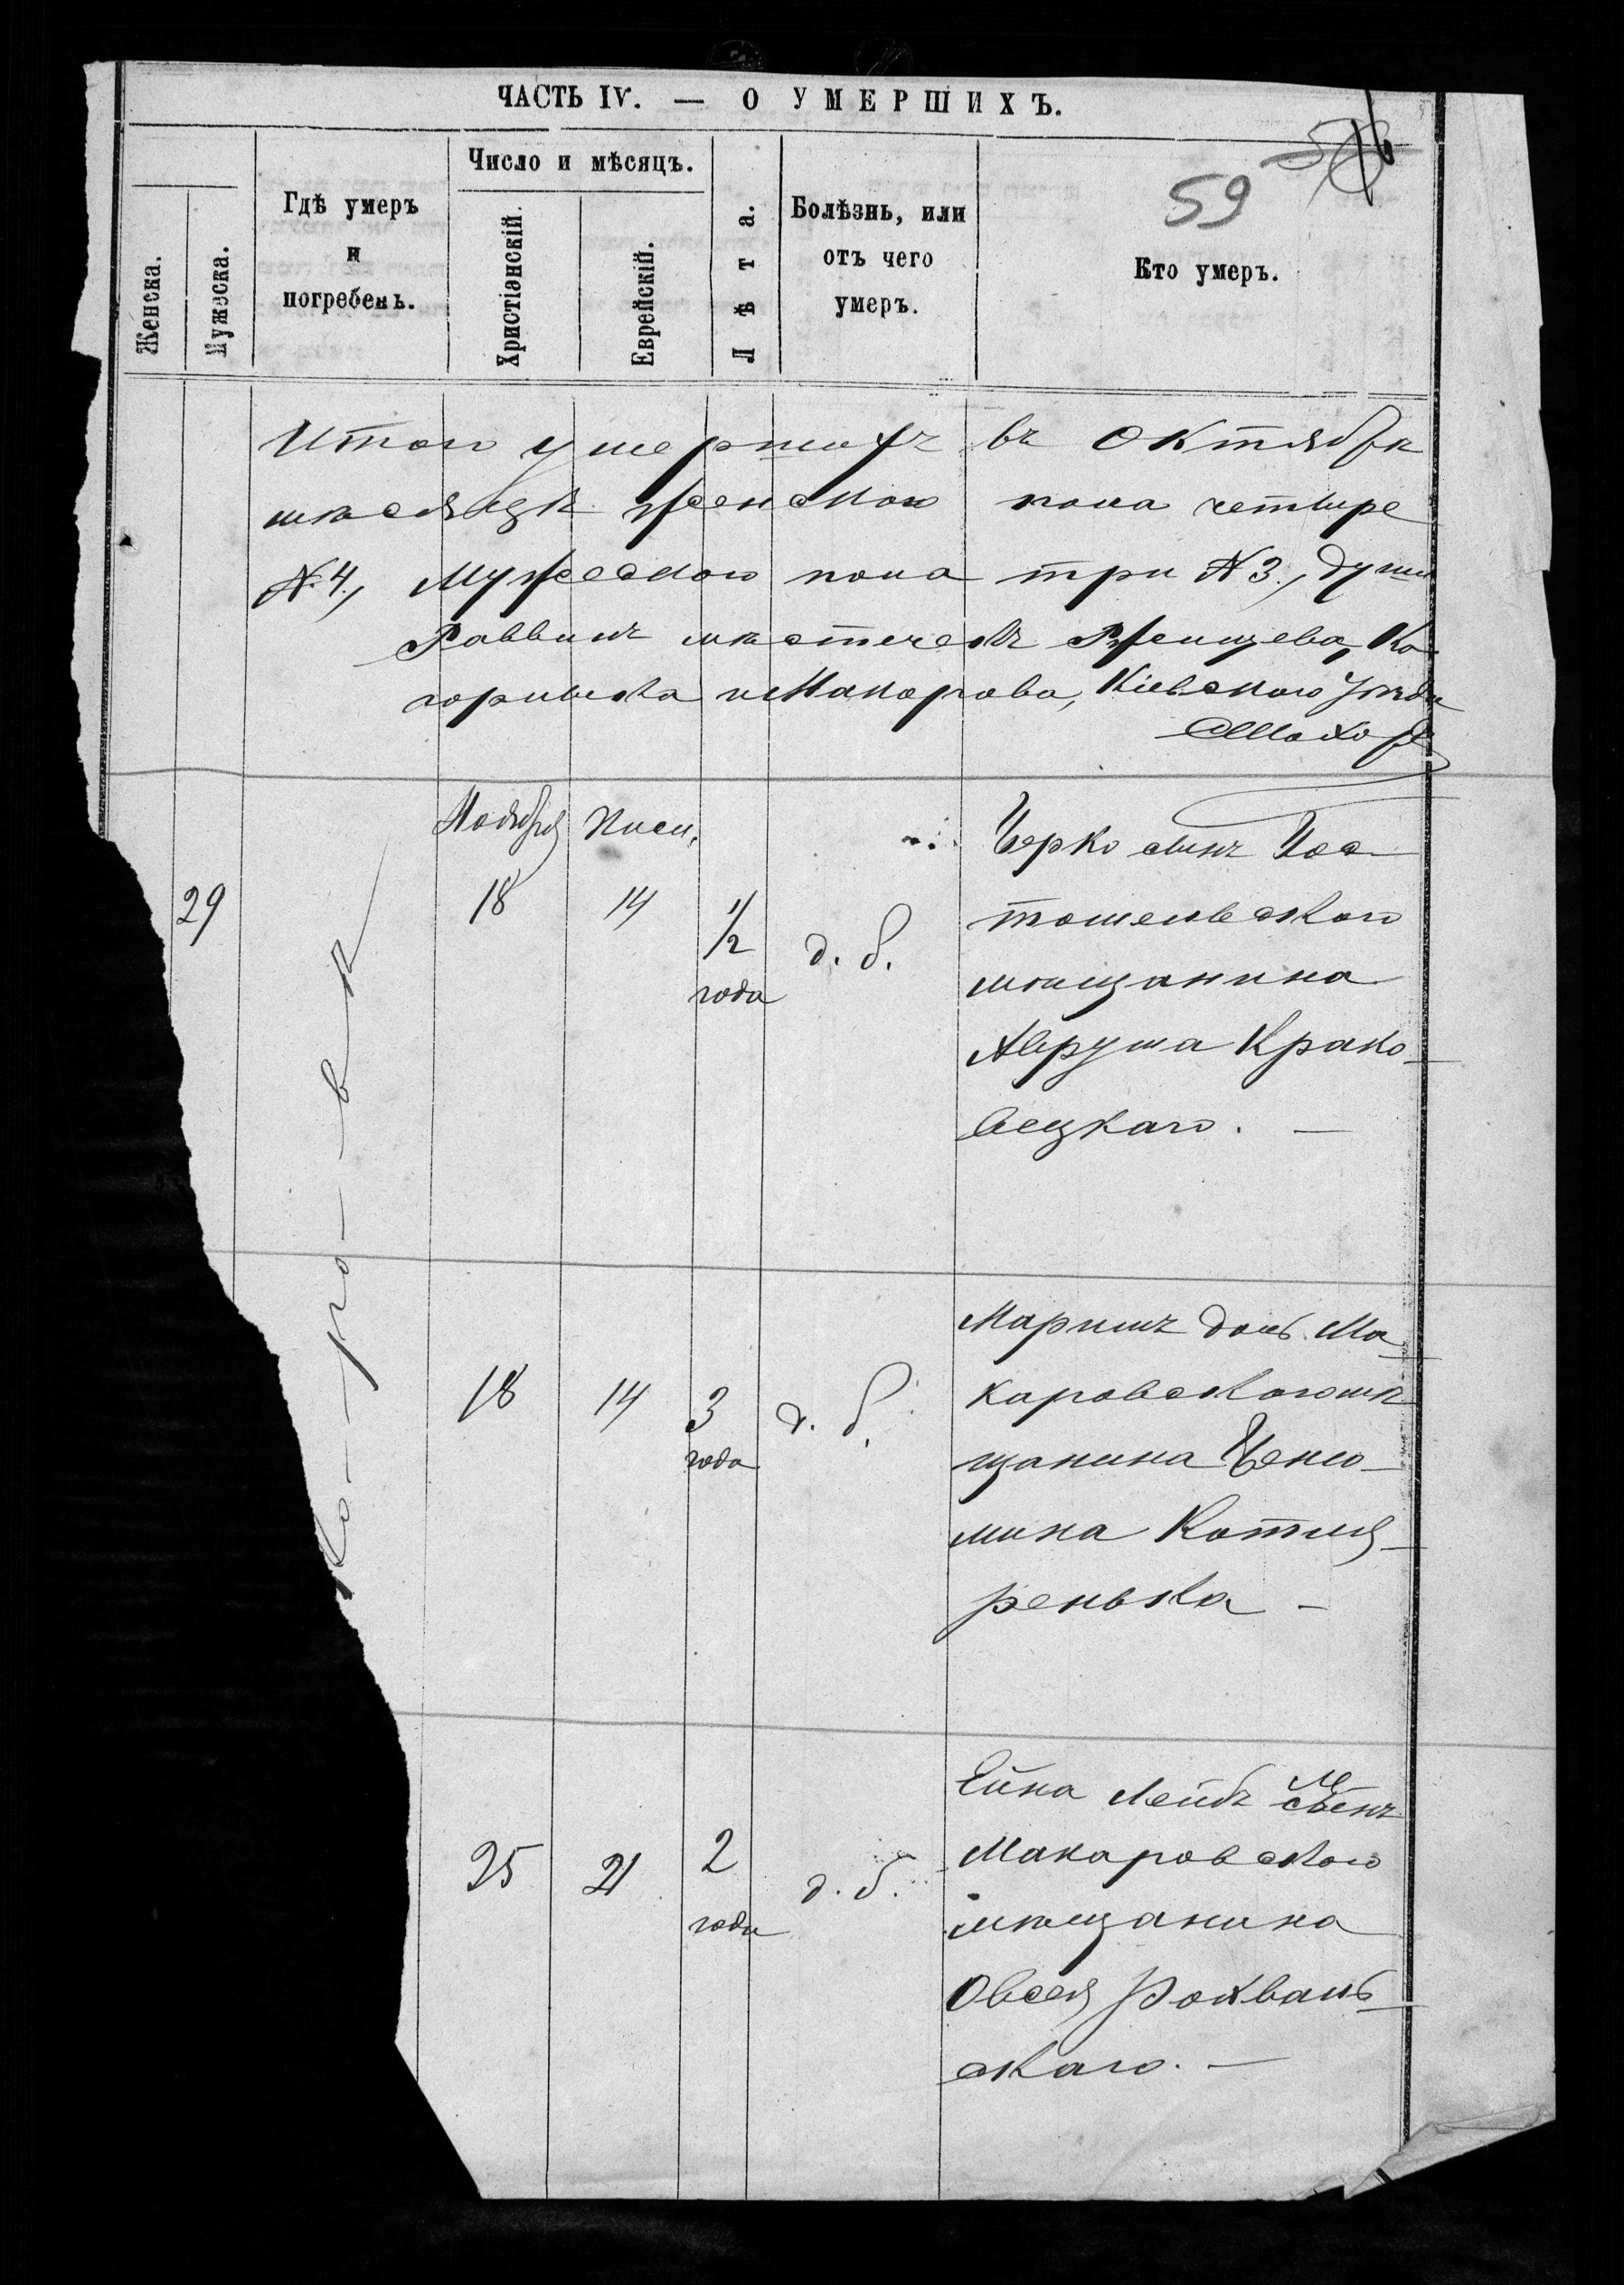 ЧАСТЬ IV. — О УМЕРШИХЪ.
59
Женска.
Мужеска.
Гдѣ умеръ
и
погребенъ.
Число и мѣсяцъ.
Христіанскій.
Еврейскій.
Лѣта.
Болѣзнь, или
отъ чего
умеръ.
Кто умеръ.
Итого умершихъ въ Октябрѣ
мѣсяцѣ женскаго пола четыре
№ 4, Мужескаго пола три № 3, души
Раввинъ мѣстечекъ Ржищева, Ка-
горлыка и Макарова, Кіевскаго уѣзда
Ноября
29
18
14
1/2
года
д. б.
Берко сынъ Пос-
томельскаго
мѣщанина
Аврума Крако-
вецкаго. —
18
14
3
года
д. б.
дочь Ма-
каровскаго мѣ
щанина Беню-
мина Котля-
ренька —
25
21
2
года
д. б.
Лейбъ сынъ
Макаровскаго
мѣщанина
Овсея
скаго. —